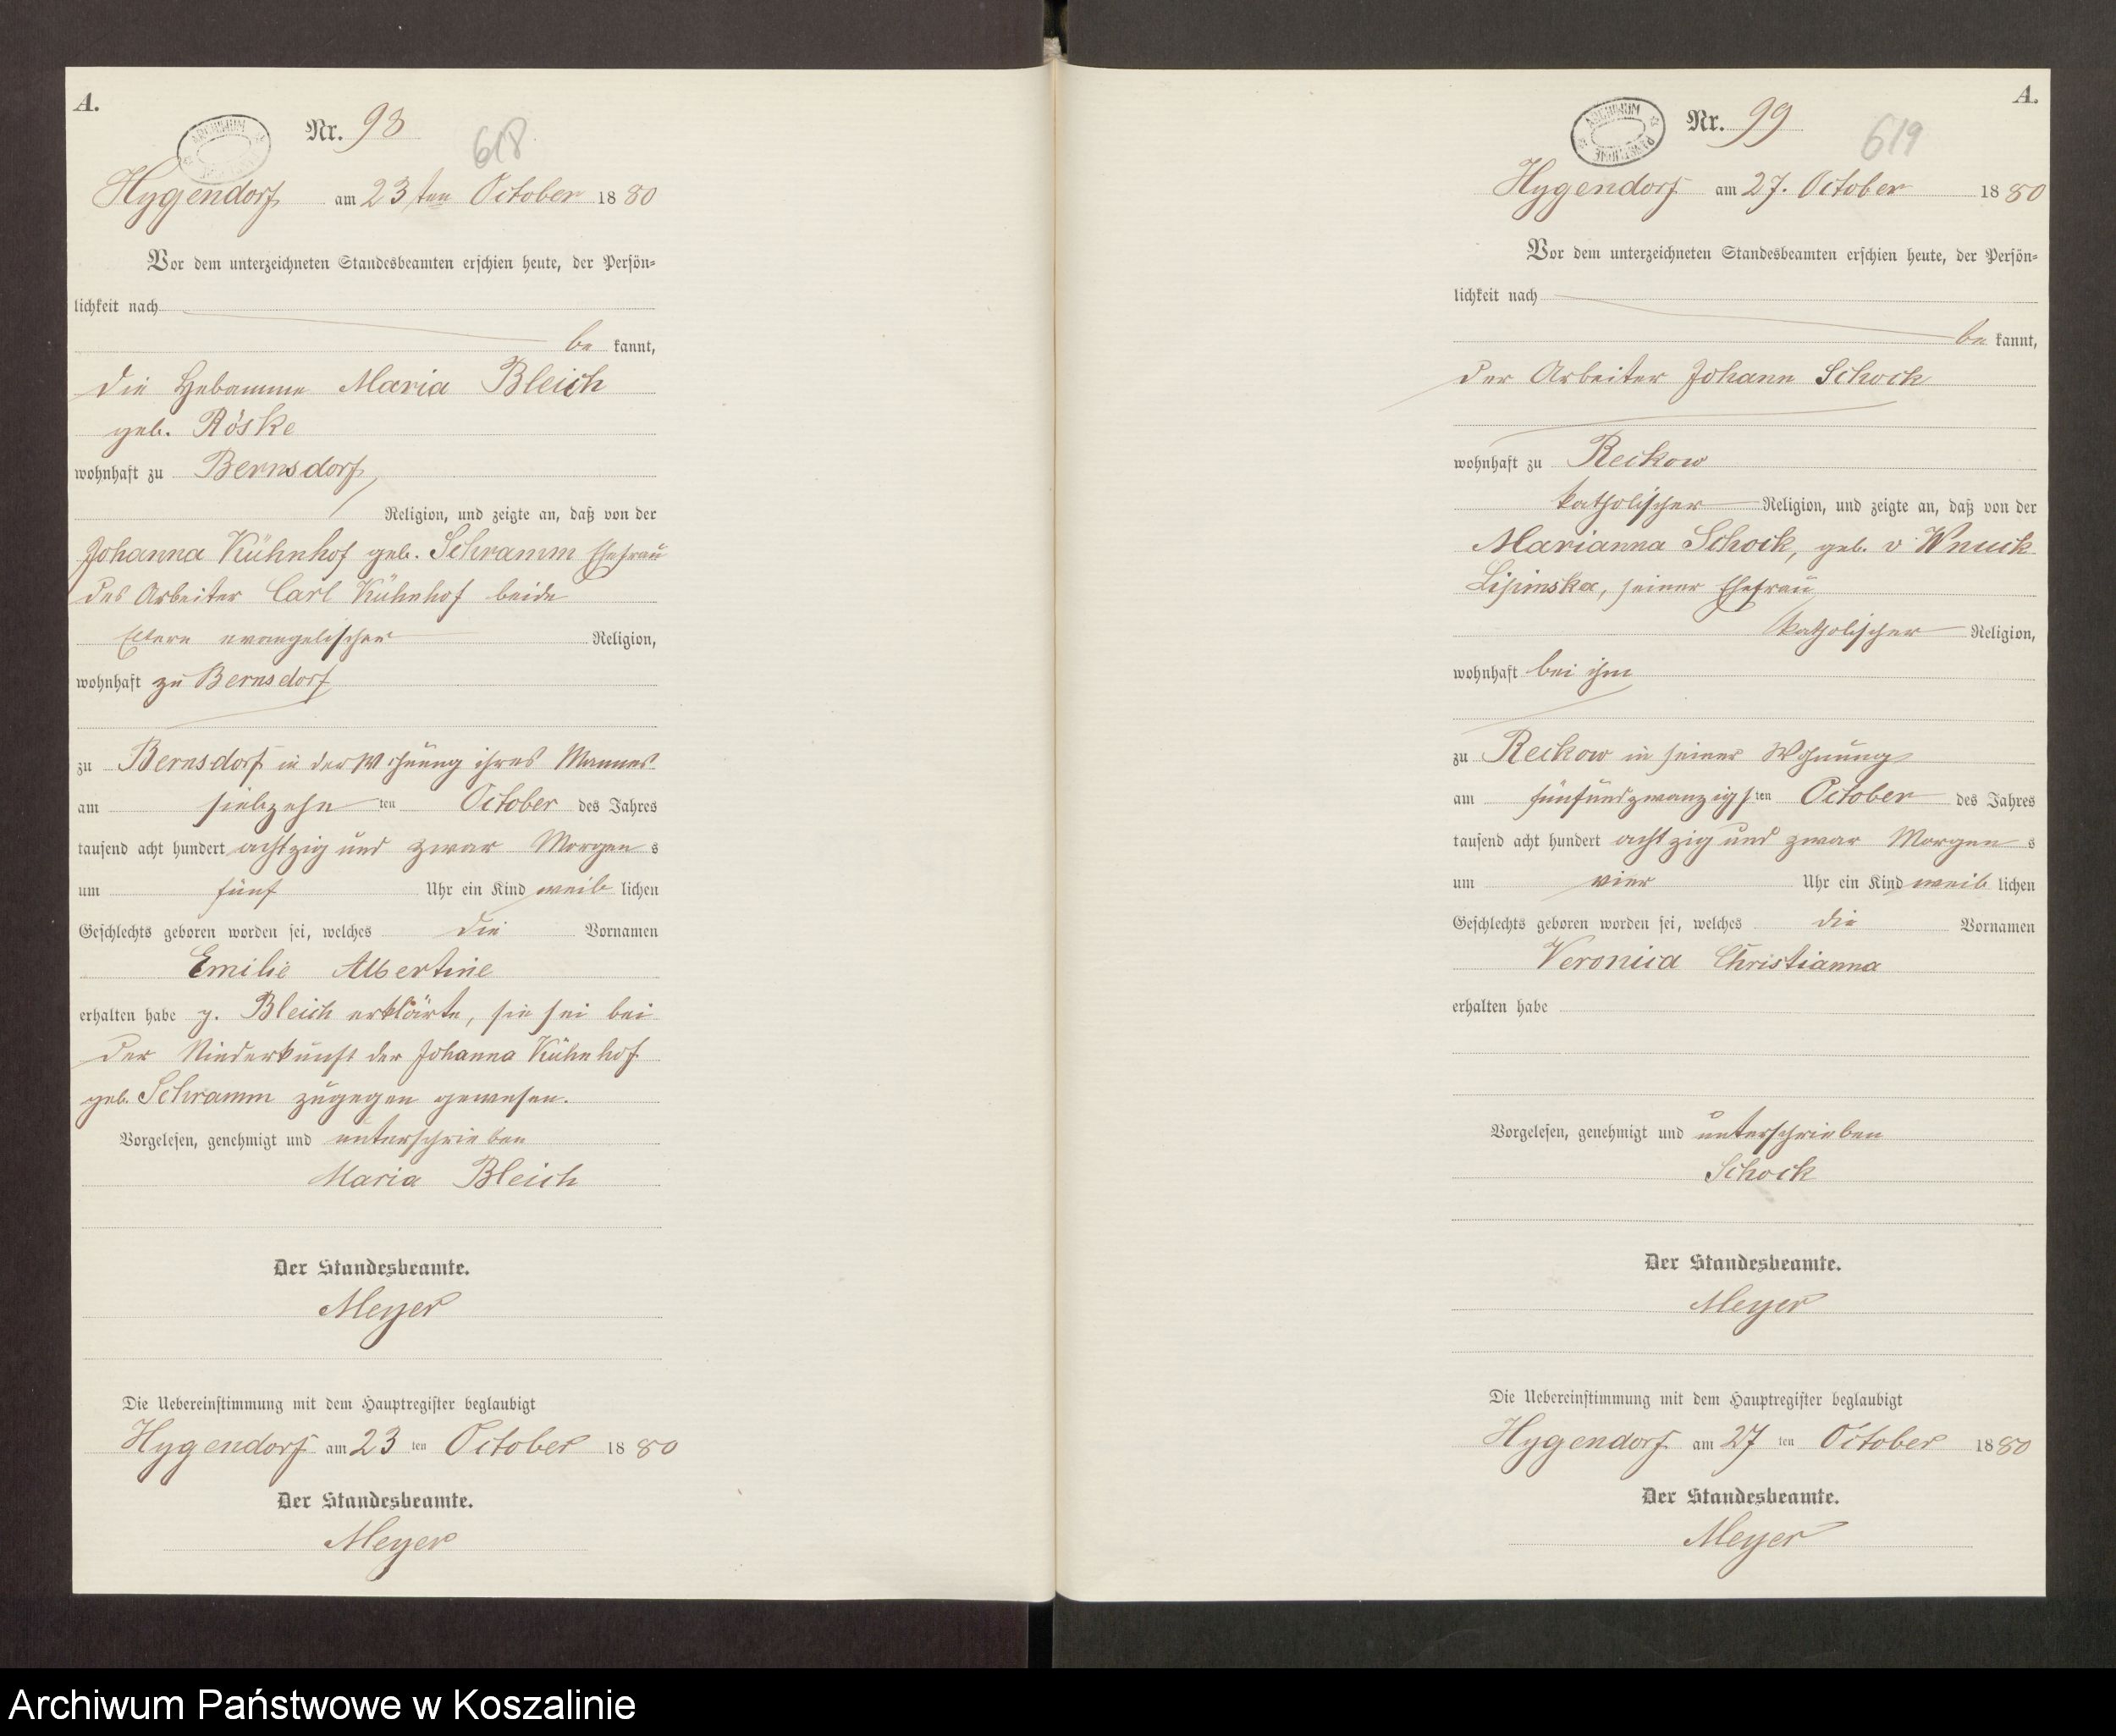 A.
Nr. 98
618
Hygendorf am 23ten October 1880
Vor dem unterzeichneten Standesbeamten erschien heute, der Persön-
lichkeit nach
be kannt,
die Hebamme Maria Bleich
geb. Röske
wohnhaft zu Bernsdorf
Religion, und zeigte an, daß von der
Johanna Kühnhof geb. Schramm Ehefrau
des Arbeiter Carl Kühnhof beide
Eltern evangelischer Religion,
wohnhaft zu Bernsdorf
zu Bernsdorf in der Wohnung ihres Mannes
am siebzehn ten October des Jahres
tausend acht hundert achtzig und zwar Morgen s
um fünf Uhr ein Kind weib lichen
Geschlechts geboren worden sei, welches die Vornamen
Emilie Albertine
erhalten habe p. Bleich erklärte, sie sei bei
der Niederkunft der Johanna Kühnhof
geb. Schramm zugegen gewesen.
Vorgelesen, genehmigt und unterschrieben
Maria Bleich
Der Standesbeamte.
Meyer
Die Uebereinstimmung mit dem Hauptregister beglaubigt
Hygendorf am 23 ten October 1880
Der Standesbeamte.
Meyer
A.
ARCHIWUM PAŃSTWOWE
Nr. 99
619
Hygendorf am 27. October 1880
Vor dem unterzeichneten Standesbeamten erschien heute, der Persön-
lichkeit nach
be kannt,
der Arbeiter Johann Schock
wohnhaft zu Reckow
katholischer Religion, und zeigte an, daß von der
Marianna Schock, geb. v Wnuck
Lipinska, seiner Ehefrau
katholischer Religion,
wohnhaft bei ihm
zu Reckow in seiner Wohnung
am fünfundzwanzigs ten October des Jahres
tausend acht hundert achtzig und zwar Morgen s
um vier Uhr ein Kind weib lichen
Geschlechts geboren worden sei, welches die Vornamen
Veronica Christianna
erhalten habe
Vorgelesen, genehmigt und unterschrieben
Schock
Der Standesbeamte.
Meyer
Die Uebereinstimmung mit dem Hauptregister beglaubigt
Hygendorf am 27 ten October 1880
Der Standesbeamte.
Meyer
Archiwum Państwowe w Koszalinie